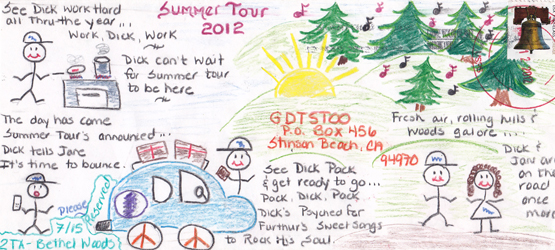 See Dick Work Hard
all Thru the year...
Work, Dick, Work
Dick can't wait
for Summer tour
to be here
Summer Tour
2012
The day has come
Summer Tour's announced...
Dick tells Jane
It's time to bounce.
GDTSTOO
P.O. Box 456
Stinson Beach, CA
94970
Fresh air, rolling hills &
Woods galore...
See Dick Pack
& get ready to go...
Pack, Dick, Pack
Dick's Psyched For
Furthur's Sweet Songs
to Rock His Soul.
Dick &
Jane are
on the
road
once
more
Please
Reserved
7/15
2TA - Bethel Woods